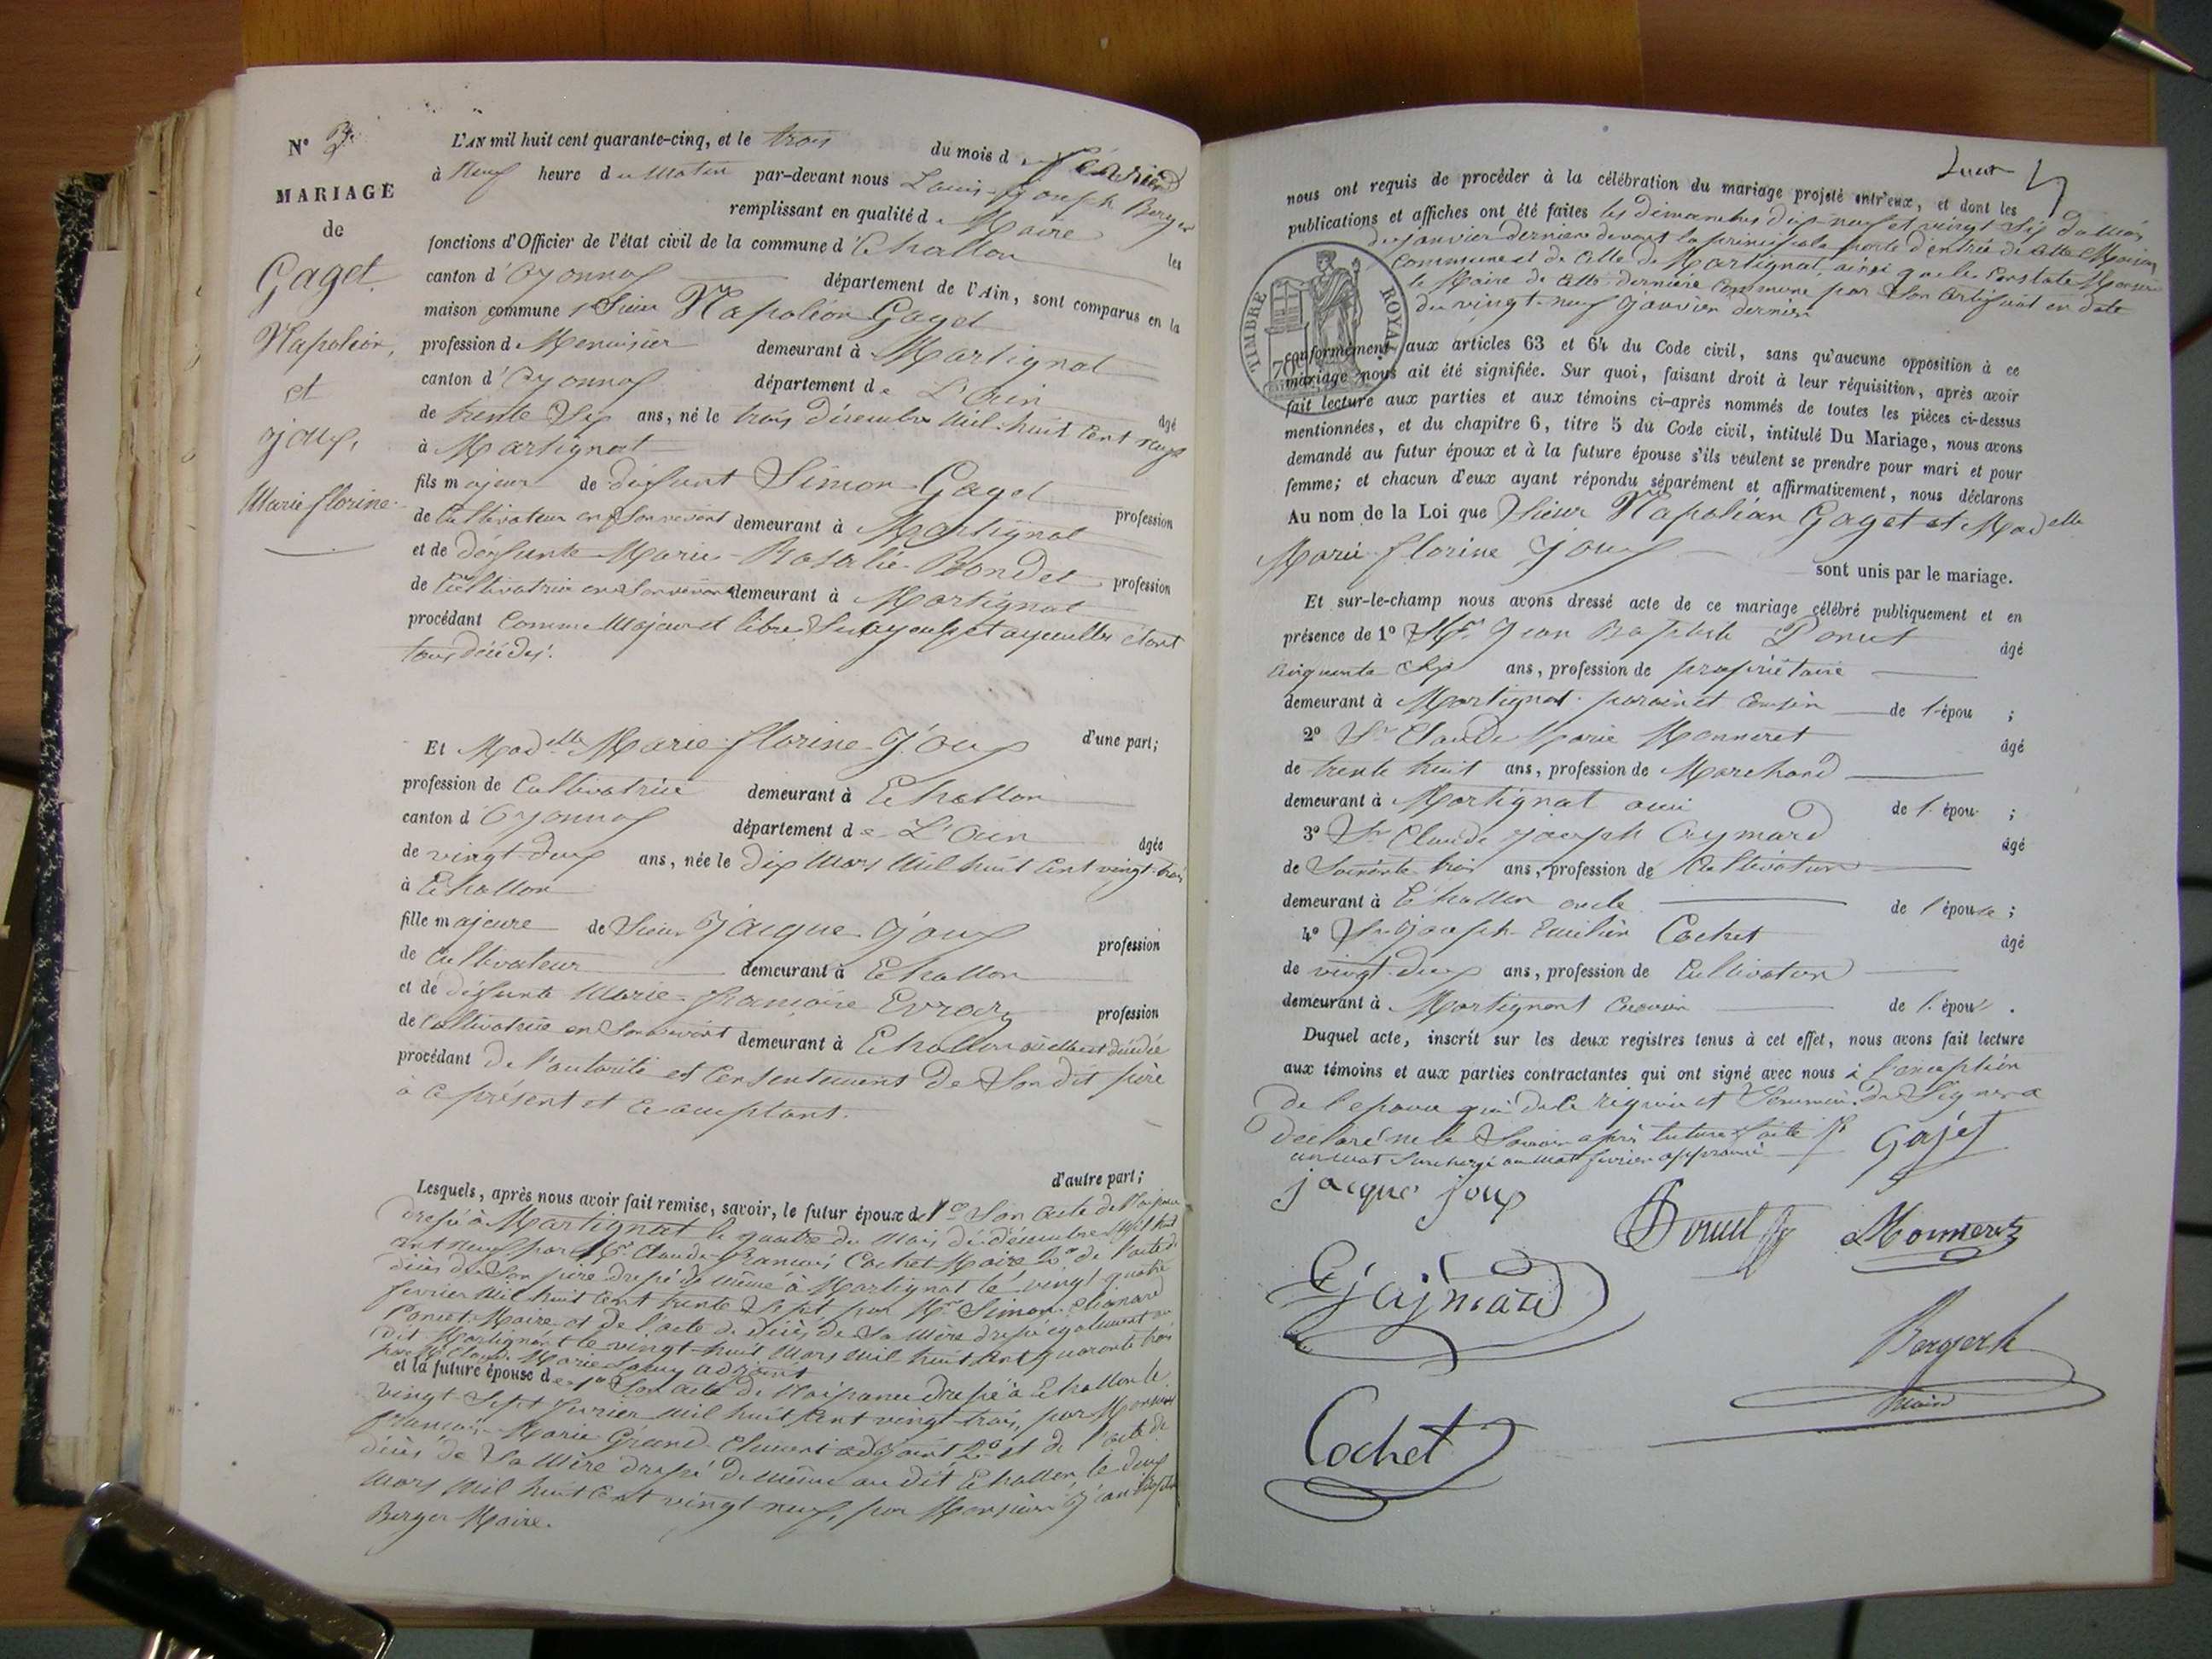 N° 2
MARIAGE
de
Gaget
Napoléon,
et
Joux,
Marie florine
L'AN mil huit cent quarante-cinq, et le trois du mois de février
à Neuf heure du Matin par-devant nous Louis Joseph Berger
remplissant en qualité de Maire les
fonctions d'Officier de l'état civil de la commune d'Echallon
canton d'Oyonnax département de l'Ain, sont comparus en la
maison commune, Sieur Napoléon Gaget
profession de Menuisier demeurant à Martignat
canton d'Oyonnax département de L'Ain
de trente Six ans, né le trois décembre Mil-huit Cent neuf âgé
à Martignat
fils majeur de défunt Simon Gaget profession
de Cultivateur en Son vivant demeurant à Martignat
et de défunte Marie-Rosalie Bondet profession
de Cultivatrice en Son vivant demeurant à Martignat
procédant Comme Majeur et libre, Ses ayeulx et ayeulles étant
tous décédés.
d'une part;
Et Madelle Marie florine Joux
profession de Cultivatrice demeurant à Echallon
canton d'Oyonnax département de L'Ain
de vingt-deux ans, née le Dix Mars Mil huit Cent vingt-trois âgée
à Echallon
fille majeure de Sieur Jacque Joux profession
de Cultivateur demeurant à Echallon
et de défunte Marie-françoise Evraz profession
de Cultivatrice en Son vivant demeurant à Echallon où elle est décédée
procédant De l'autorité et Consentement De Son dit père
à ce présent et acceptant.
d'autre part;
Lesquels, après nous avoir fait remise, savoir, le futur époux de 1° Son acte de Naissance
dressé à Martignat le quatre du Mois de décembre Mil huit
cent neuf par Mr. Claude-François Cochet Maire 2° de l'acte de
décès de Son père dressé de même à Martignat le vingt quatre
février Mil huit Cent trente Sept par Mr Simon
Poncet Maire et de l'acte de décès de Sa Mère dressé également au
dit Martignat le vingt-huit Mars Mil huit Cent quarante trois
par Mr Claude Marie adjoint
et la future épouse de 1° Son acte de Naissance dressé à Echallon le
vingt-Sept février Mil huit Cent vingt-trois, par Monsieur
François-Marie Grand-Clement adjoint 2° et de l'acte de
décès de Sa Mère dressé De même au dit Echallon, le deux
Mars Mil huit Cent vingt-neuf, par Monsieur Jean Baptiste
Berger Maire.
nous ont requis de procéder à la célébration du mariage projeté entr'eux, et dont les
publications et affiches ont été faites les dimanches dix-neuf et vingt Six du Mois
de janvier dernier devant la principale porte d'entrée de cette Maison
Commune et de Celle de Martignat, ainsi que le Constate Monsieur
le Maire de cette dernière Commune par Son Certificat en date
du vingt-neuf Janvier dernier
TIMBRE ROYAL
70c
conformément aux articles 63 et 64 du Code civil, sans qu'aucune opposition à ce
mariage nous ait été signifiée. Sur quoi, faisant droit à leur réquisition, après avoir
fait lecture aux parties et aux témoins ci-après nommés de toutes les pièces ci-dessus
mentionnées, et du chapitre 6, titre 5 du Code civil, intitulé Du Mariage, nous avons
demandé au futur époux et à la future épouse s'ils veulent se prendre pour mari et pour
femme; et chacun d'eux ayant répondu séparément et affirmativement, nous déclarons
Au nom de la Loi que Sieur Napoléon Gaget et Madelle
Marie-florine Joux
sont unis par le mariage.
Et sur-le-champ nous avons dressé acte de ce mariage célébré publiquement et en
présence de 1° Mr. Jean Baptiste Poncet âgé
Cinquante Six ans, profession de propriétaire
demeurant à Martignat Cousin de l'épou ;
2° Sr Claude Marie Monneret âgé
de trente huit ans, profession de Marchand
demeurant à Martignat ami de l'épou ;
3° Sr Claude Joseph Aymard âgé
de Soixante trois ans, profession de Cultivateur
demeurant à Echallon oncle de l'épouse ;
4° Sr Joseph Emilien Cochet âgé
de vingt-deux ans, profession de Cultivateur
demeurant à Martignat Cousin de l'épou .
Duquel acte, inscrit sur les deux registres tenus à cet effet, nous avons fait lecture
aux témoins et aux parties contractantes qui ont signé avec nous à l'exception
De l'épouse qui de ce requise et Sommée De Signer a
déclaré ne le Savoir après lecture faite
un mot Surchargé au mot février approuvé
Gajet
jacque joux
Monneret
Cochet
Maire